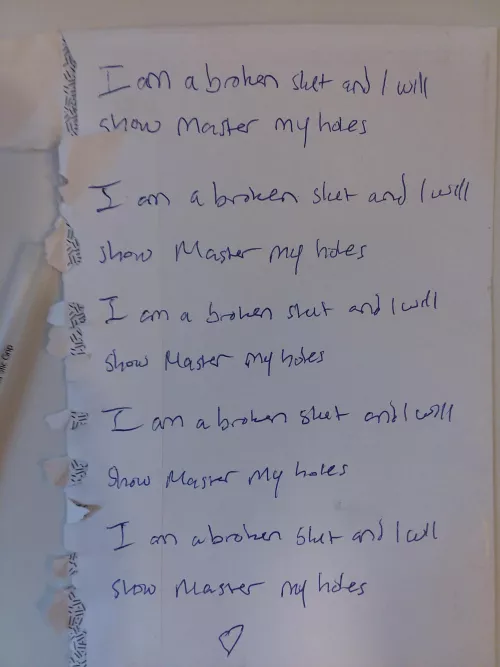 I am a broken slut and I will
show Master my holes
I am a broken slut and I will
show Master my holes
I am a broken slut and I will
show Master my holes
I am a broken slut and I will
show Master my holes
I am a broken slut and I will
show Master my holes